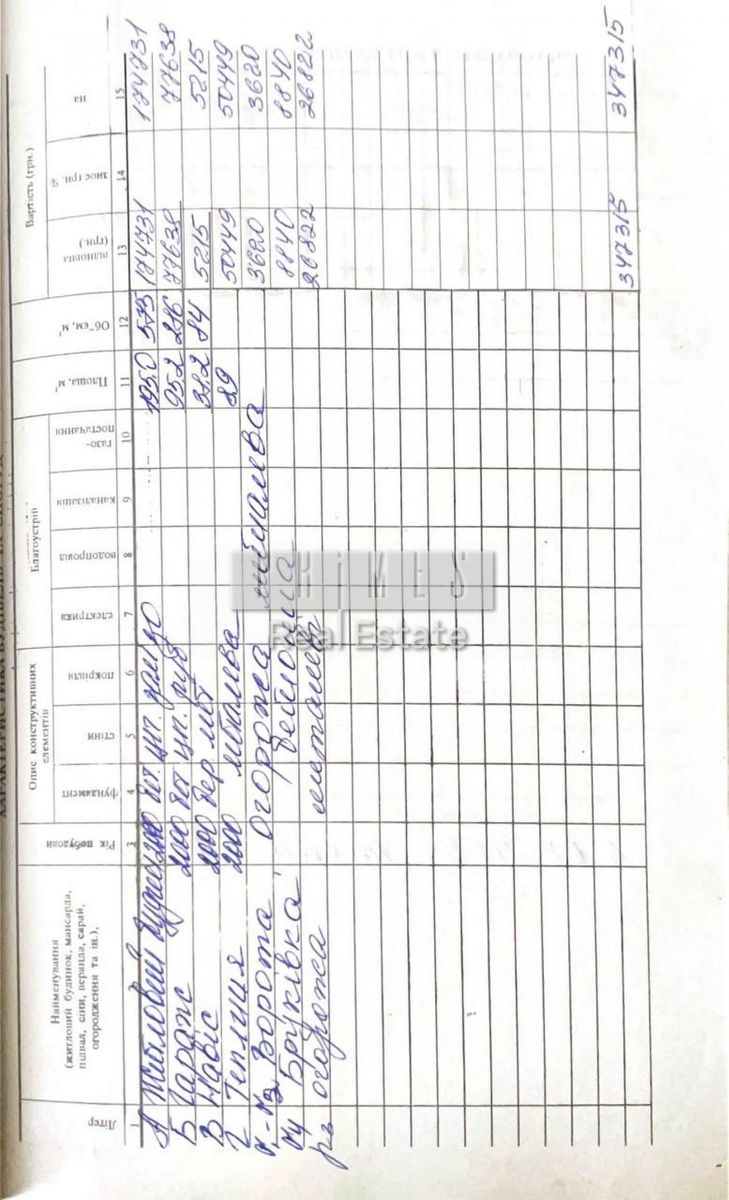 ХАРАКТЕРИСТИКА БУДІВЕЛЬ ТА СПОРУД
Літер
Найменування
(житловий будинок, мансарда,
підвал, сіни, веранда, сарай,
огородження та ін.),
Рік побудови
Опис конструктивних
елементів
фундамент
стіни
покрівля
Благоустрій
електрика
водопровід
каналізація
газо-
постачання
Площа, м²
Об"єм, м³
Вартість (грн.)
відновна
(грн.)
знос грн. %
на
1 2 3 4 5 6 7 8 9 10 11 12 13 14 15
А Житловий будинок 2000 бт. цгл. 1950 575 174731 174731
Б Гараж 2000 бт цгл. руб 95.2 286 77638 77638
В Навіс 2000 дер. мет 38.2 84 5215 5215
Г Теплиця 2000 металева 89 50449 50449
Ворота Огорожа металева 3620 3620
Бруківка бетонна 8840 8840
огорожа металева 26822 26822
347315 347315
CHIMES
Real Estate